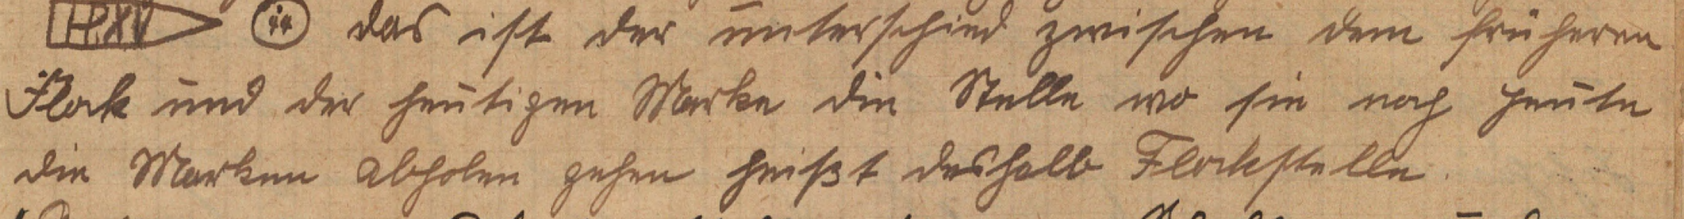 H.XV ü das ist der unterschied zwischen dem früheren
Flock und der heutigen Marke die Stelle wo sie noch heute
die Marken abholen gehen heißt deshalb Flockstelle.